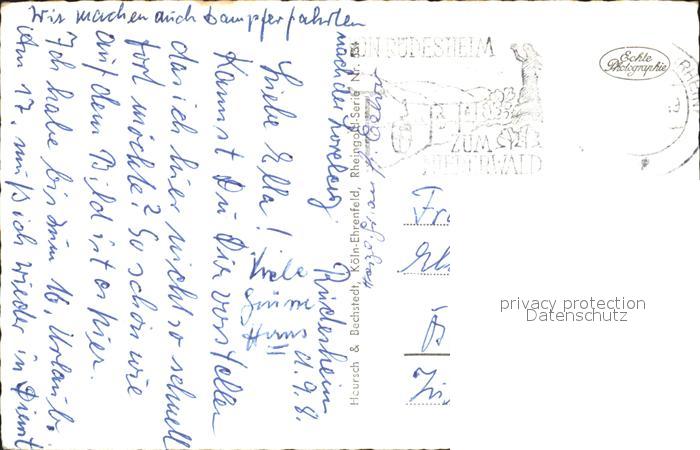 Rüdesheim d. 9. 8.
Liebe Ella!
Kannst Du Dir vorstellen
das ich hier nicht so schnell
fort möchte? So schön wie
auf dem Bild ist es hier.
Ich habe bis zum 16. Urlaub.
Am 17. muß ich wieder in Dienst
Wir machen auch Dampferfahrten
nach der Loreley
Viele
Grüsse
Hans!!
Heursch & Bechstedt, Köln-Ehrenfeld, Rheingold-Serie Nr.
RÜDESHEIM
ZUM
NIEDERWALD
Echte
Photographie
Fr
privacy protection
Datenschutz